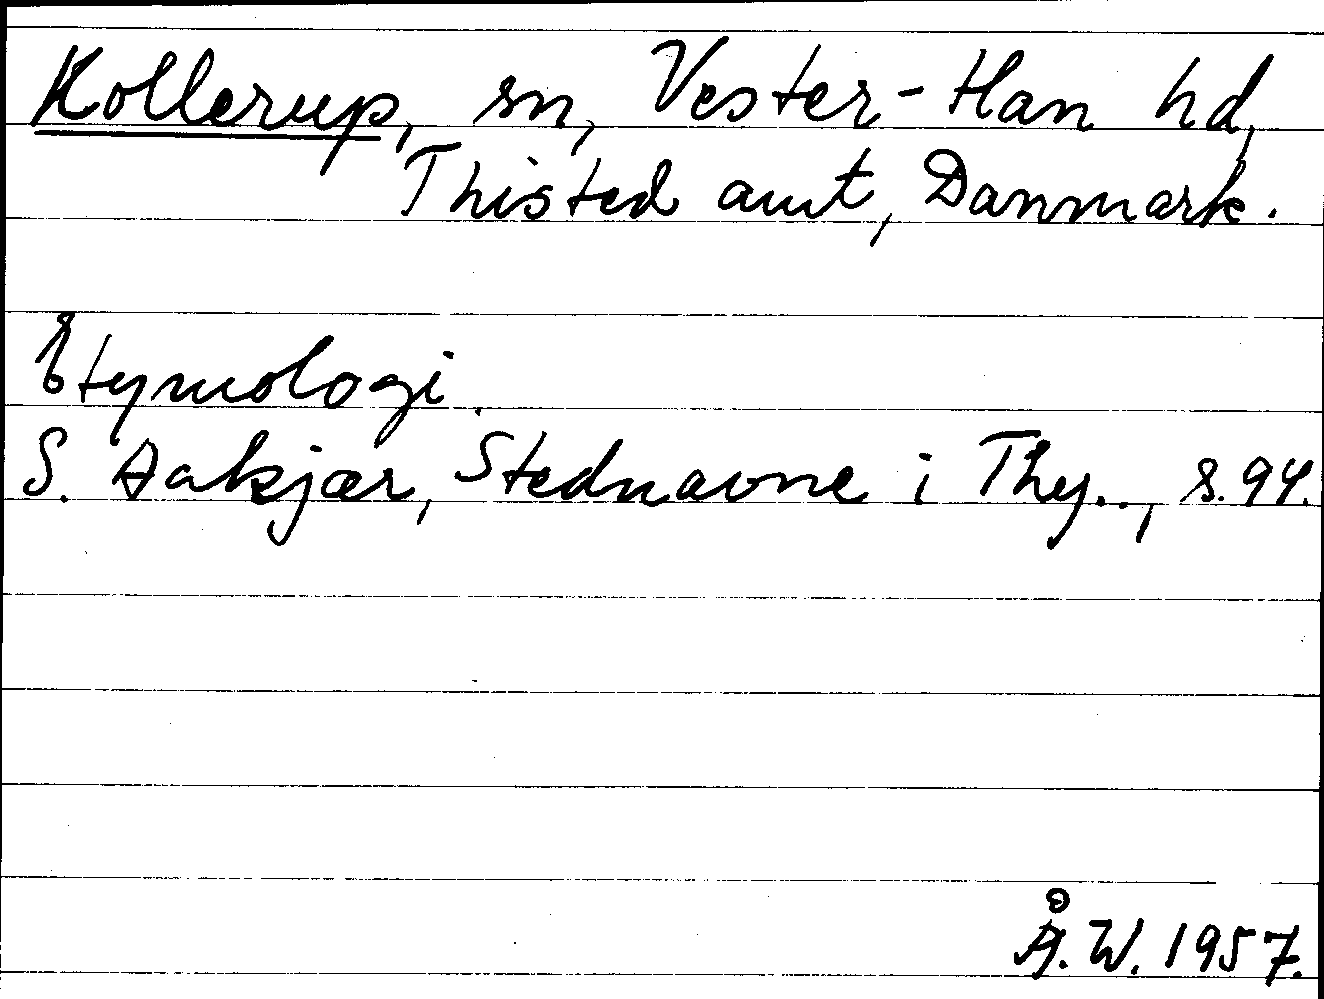 Kollerup, sn, Vester-Han hd,
Thisted amt, Danmark.
Etymologi.
S. Aakjær, Stednavne i Thy.., s. 94.
Å.W. 1957.